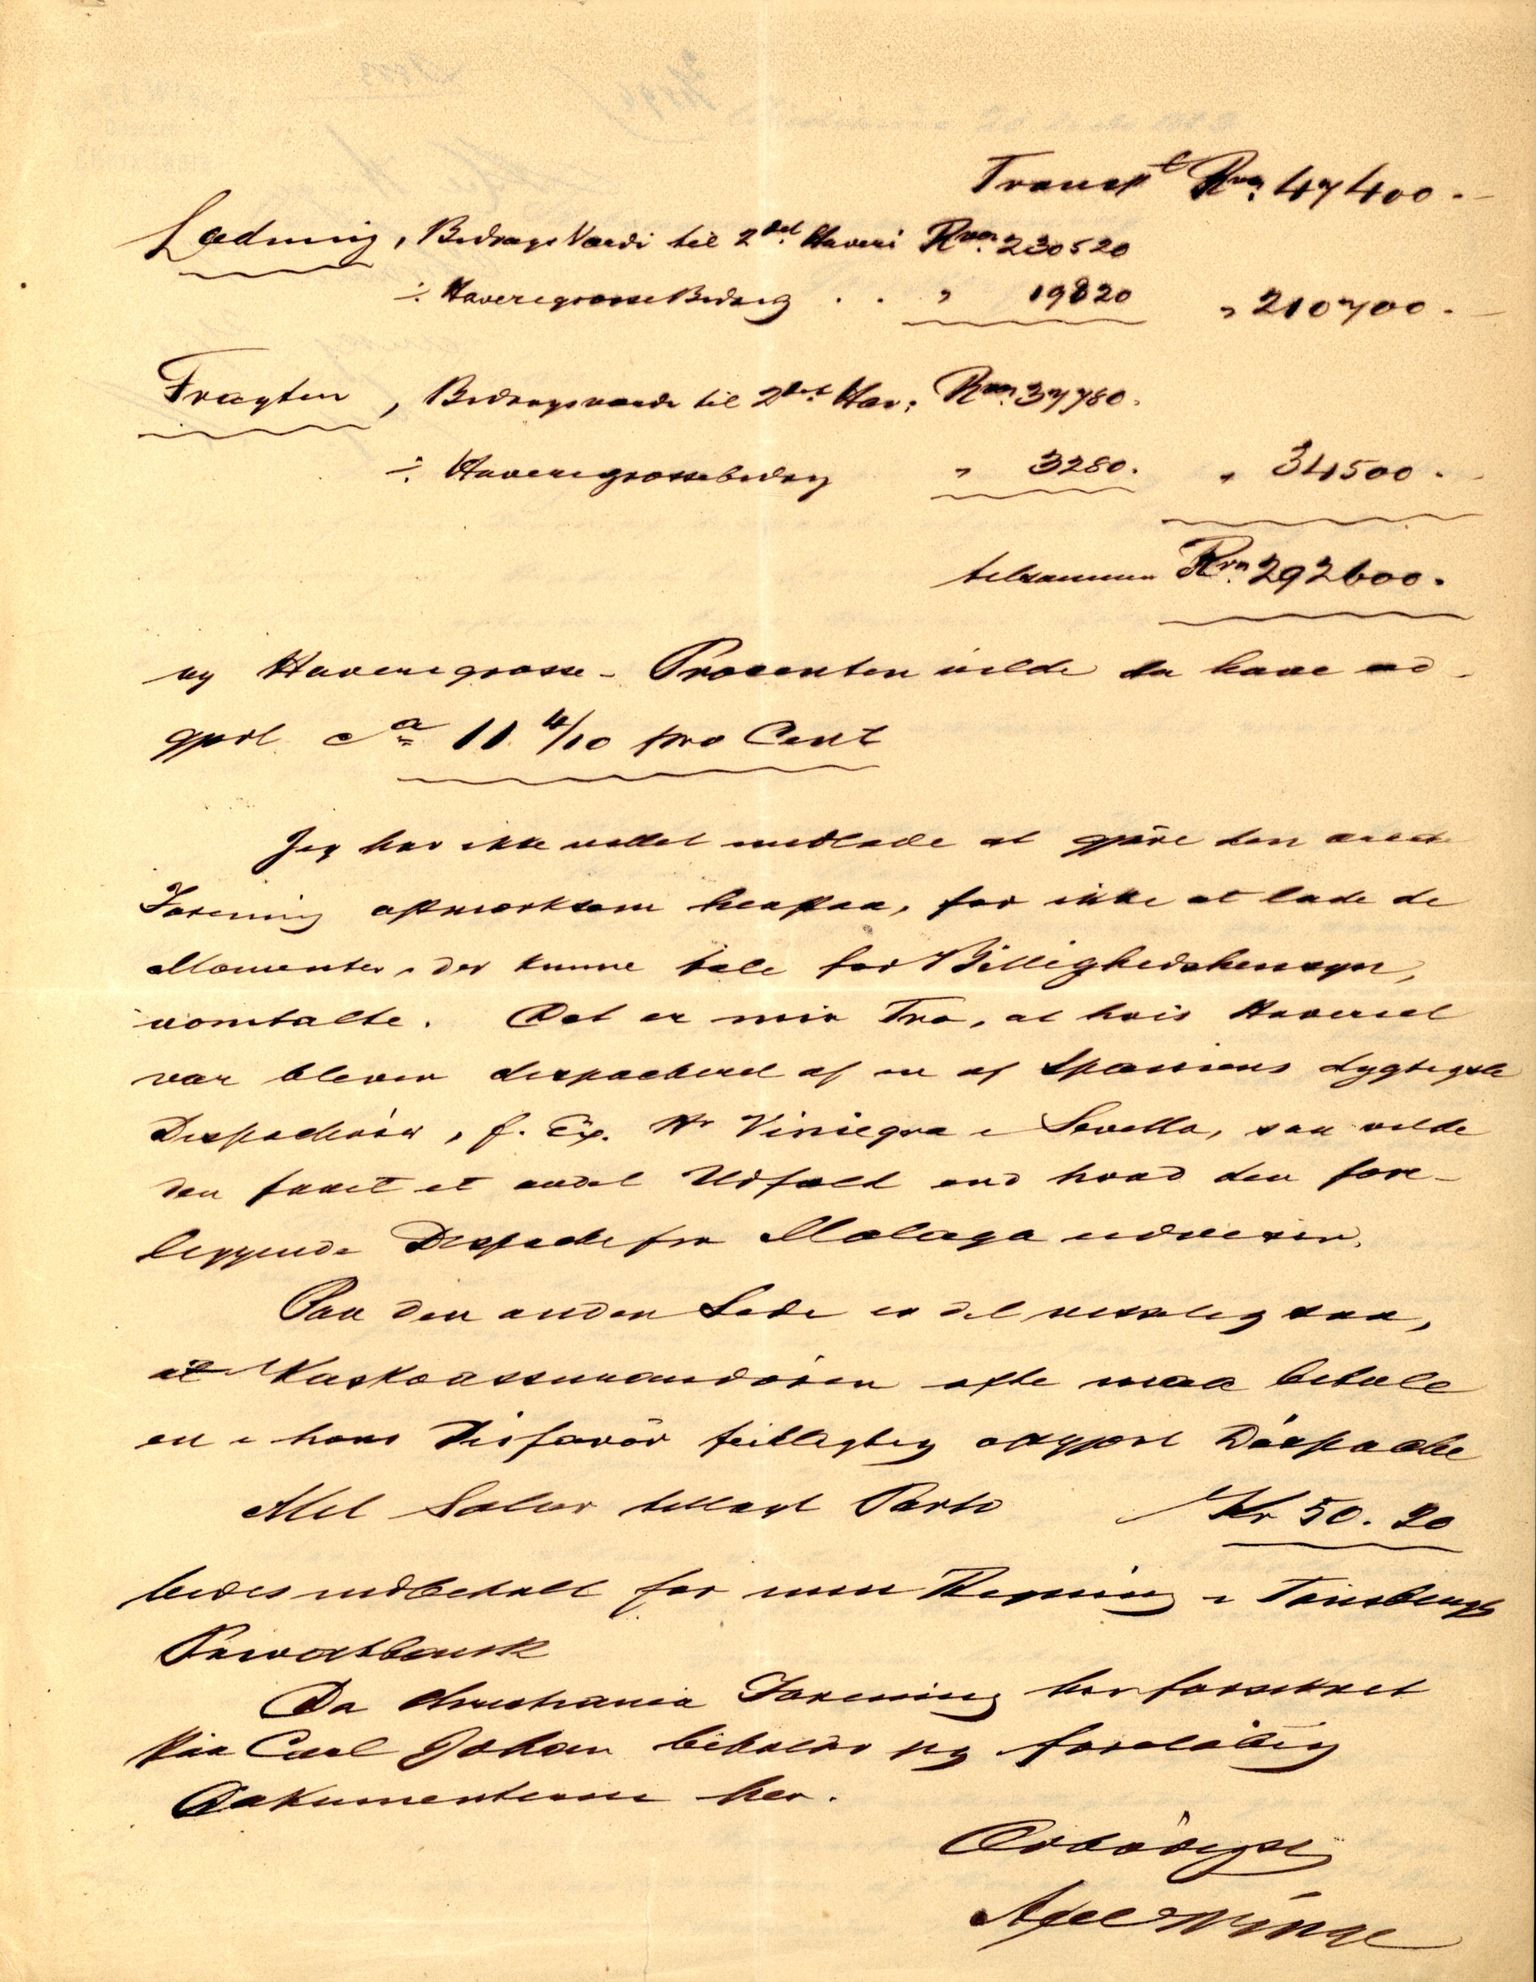 Transpt Rvn. 47400.
Ladning, Bidrags Værdi til 2det Haveri Rvn. 230520
÷ Haverigrosse Bidrag . . " 19820 " 210700.
Fragten, Bidragsværdi til 2det Hav: Rvn. 37780.
÷ Haverigrossebidrag " 3280. " 34500.
tilsammen Rvn. 292600.
og Haverigrosse-Procenten vilde da have ud-
gjort ca 11 4/10 pro Cent
Jeg har ikke villet undlade at gjöre den ærede
Forening opmærksom herpaa, for ikke at lade de
Momenter, der kunne tale for Billighedshensyn,
uomtalte. Det er min Tro, at hvis Haveriet
var bleven dispacheret af en af Spaniens dygtigste
Dispachörer, f. Ex. Hr Viniegra i Sevilla, saa vilde
den faaet et andet Udfald end hvad den fore-
liggende Dispache fra Malaga udviser.
Paa den anden Side er det visselig saa,
at Kaskoassurandören ofte maa betale
en i hans Disfavör feilagtig opgjort Dispache
Mit Salær tillagt Porto Kr 50.20
bedes indbetalt for min Regning i Tönsbergs
Privatbank
Da Christiania Forening har forsikret
paa Carl Johan beholder jeg foreløbig
Dokumenterne her.
Ærbödigst
Axel Winge